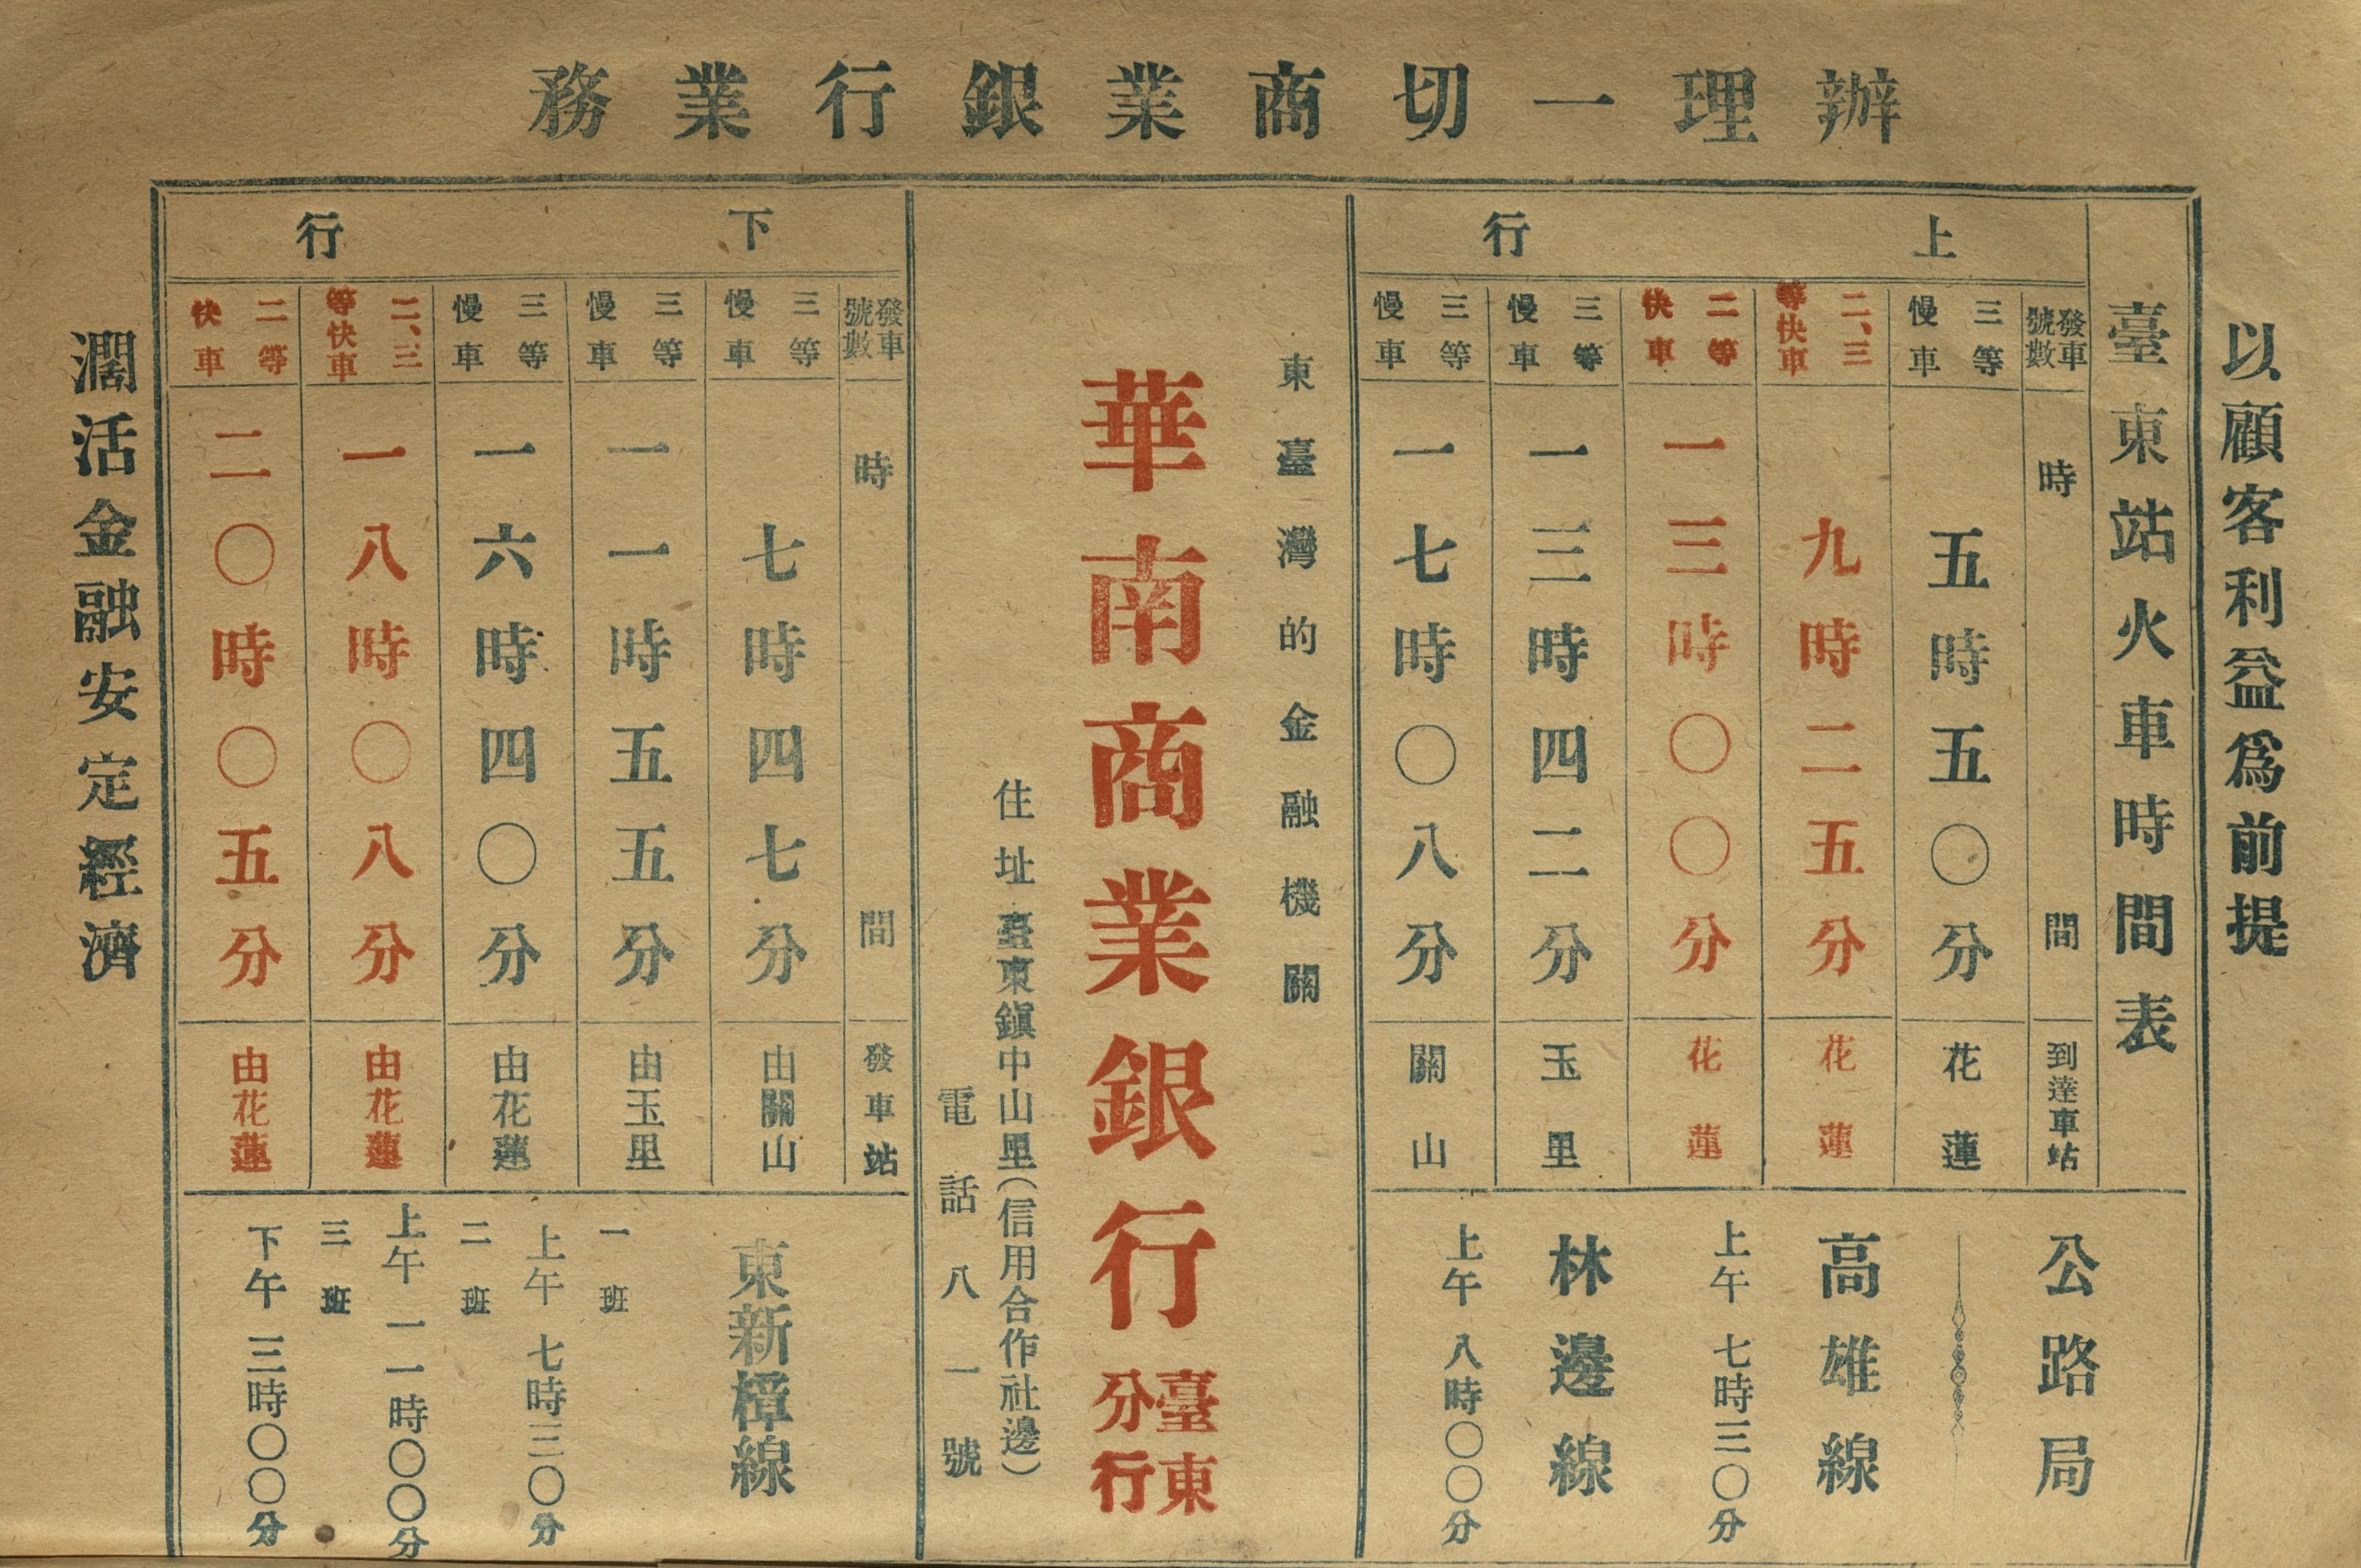 辦理一切商業銀行業務
以顧客利益爲前提
臺東站火車時間表
上行
發車號數 時間 到達車站
三等慢車 五時五〇分 花蓮
二、三等快車 九時二五分 花蓮
二等快車 一三時〇〇分 花蓮
三等慢車 一三時四二分 玉里
三等慢車 一七時〇八分 關山
公路局
高雄線
上午七時三〇分
林邊線
上午八時〇〇分
東臺灣的金融機關
華南商業銀行臺東分行
住址臺東鎭中山里(信用合作社邊)
電話八一號
下行
發車號數 時間 發車站
三等慢車 七時四七分 由關山
三等慢車 一一時五五分 由玉里
三等慢車 一六時四〇分 由花蓮
二、三等快車 一八時〇八分 由花蓮
二等快車 二〇時〇五分 由花蓮
東新樟線
一班
上午七時三〇分
二班
上午一一時〇〇分
三班
下午三時〇〇分
濶活金融安定經濟